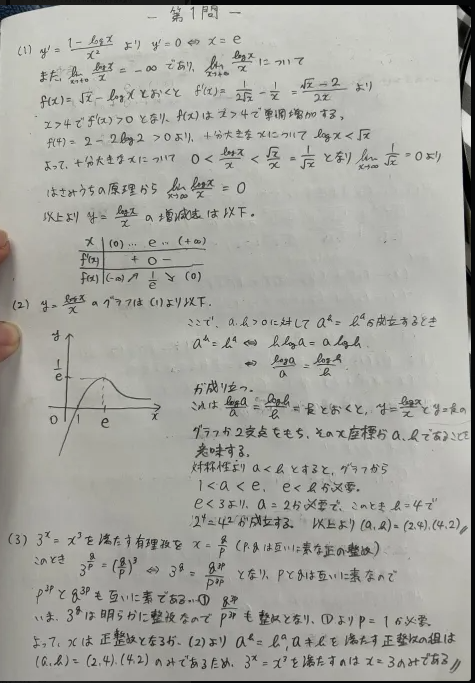 ― 第1問 ―
(1) y' = (1 - logx)/x² より y' = 0 ⇔ x = e
また、lim_{x→+0} logx/x = -∞ であり、lim_{x→∞} logx/x について
f(x) = √x - logx とおくと f'(x) = 1/(2√x) - 1/x = (√x - 2)/2x より
x > 4 で f'(x) > 0 となり、f(x) は x > 4 で単調増加する。
f(4) = 2 - 2log2 > 0 より、十分大きなxについて logx < √x
よって、十分大きなxについて 0 < logx/x < √x/x = 1/√x となり lim_{x→∞} 1/√x = 0 より
はさみうちの原理から lim_{x→∞} logx/x = 0
以上より y = logx/x の増減表は以下。
x (0) … e … (+∞)
f'(x) + 0 -
f(x) (-∞) ↗ 1/e ↘ (0)
(2) y = logx/x のグラフは(1)より以下.
y
1/e
0 1 e x
ここで、a, b > 0 に対して a^b = b^a が成立するとき
a^b = b^a ⇔ b log a = a log b
⇔ loga/a = logb/b
が成り立つ。
これは loga/a = logb/b = k とおくと、y = logx/x と y = k の
グラフが2交点をもち、そのx座標が a, b であることを
意味する。
対称性より a < b とすると、グラフから
1 < a < e, e < b が必要。
e < 3 より、a = 2 が必要で、このとき b = 4 で
2⁴ = 4² が成立する。 以上より (a, b) = (2, 4), (4, 2)
(3) 3^x = x³ を満たす有理数を x = q/p (p, q は互いに素な正の整数)
このとき 3^{q/p} = (q/p)³ ⇔ 3^q = q^{3p}/p^{3p} となり、pとqは互いに素なので
p^{3p} と q^{3p} も互いに素である… ①
いま、3^q は明らかに整数なので q^{3p}/p^{3p} も整数となり、①より p = 1 が必要。
よって、xは正整数となるが、(2)より a^b = b^a, a ≠ b を満たす正整数の組は
(a, b) = (2, 4), (4, 2) のみであるため、3^x = x³ を満たすのは x = 3 のみである